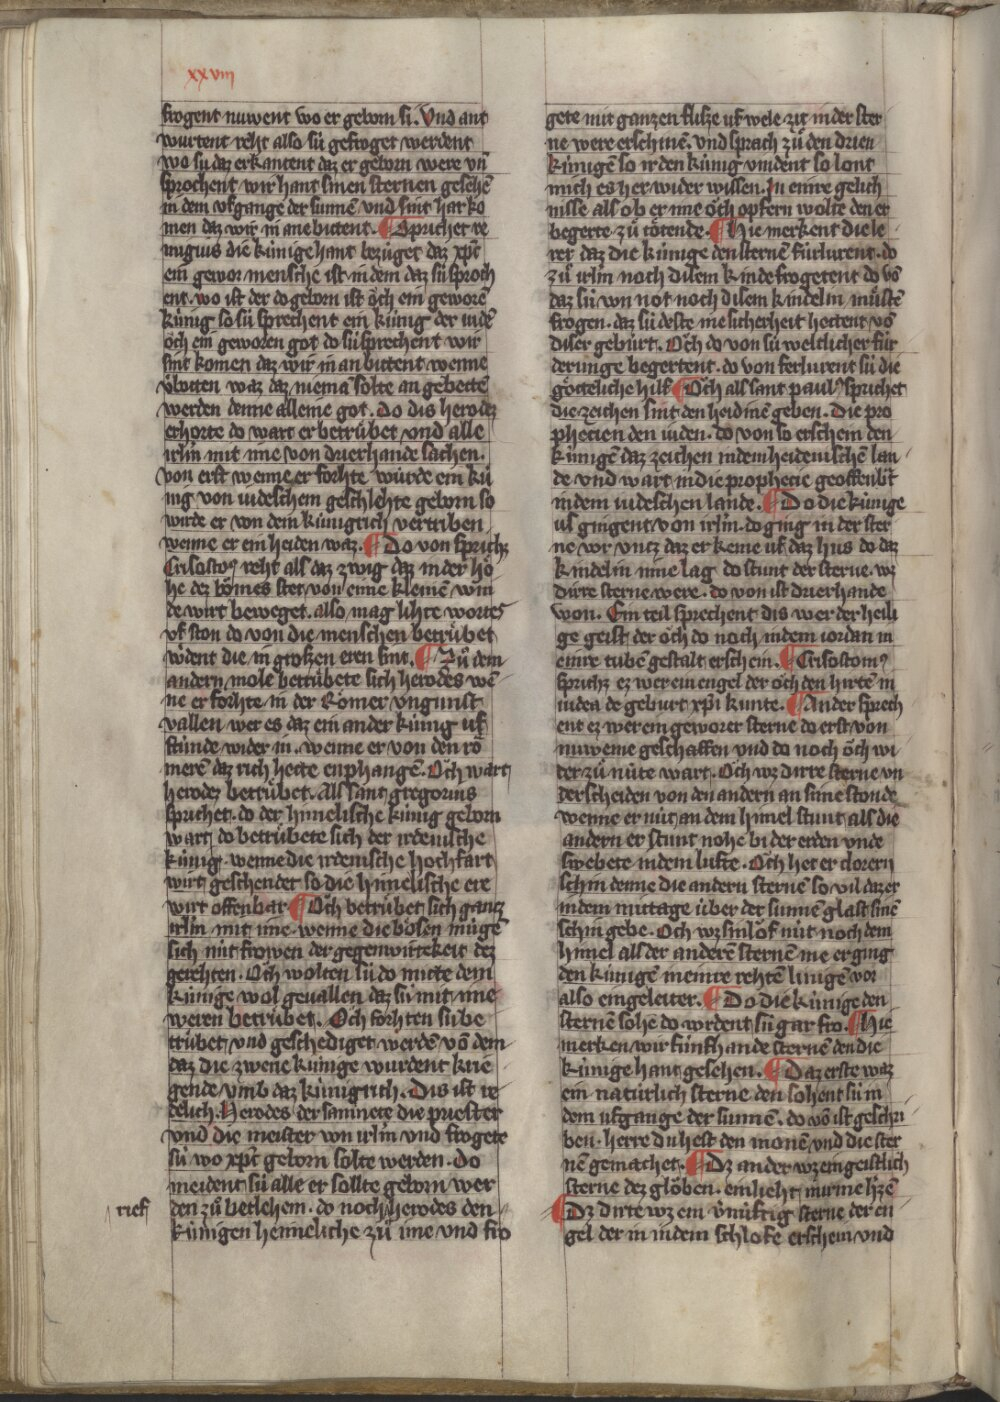 xxviii
frogent nuwent wo er geborn si. Vnd ant
wurtent reht also sú gefroget werdent
wo sú daz erkantent daz er geborn were vn̄
sprochent wir hant sinen sternen gesehē
in dem vfgange der sunnē vnd sint har ko
men daz wir in anebittent. ¶ Sprichet re
migius die kúnige hant bezúget daz xp̄c
ein gewor mensche ist in dem daz sú sproch
ent. wo ist der do geborn ist ŏch ein geworē
kúnig so sú sprechent ein kúnig der iudē
ŏch ein geworen got do sú sprechent wir
sint komen daz wir in an bittent wenne
v̇botten waz daz niemā solte an gebettē
werden denne alleine got. Do dis herodez
erhorte do wart er betrůbet vnd alle
irl̄m mit ime von drierhande sachen.
von erst wenne er forhte wúrde ein kú
nig von iudeschem geschlehte geborn so
wirde er von dem kúnigrich vertriben
wenne er ein heiden waz. ¶ Do von sprichz
Crisostoꝰ reht als daz zwig daz in der hŏ
he dez bŏmes stet von eime kleinē win
de wirt beweget. also mag lihte wortes
vf ston do von die menschen betrůbet
wˀdent die in grossen eren sint. ¶ Zů dem
andern mole betrůbete sich herodes wē
ne er forhte in der Romer vngunst
vallen wer es daz ein ander kúnig uf
stúnde wider in. wenne er von den rŏ
merē daz rich hette enphangē. Ŏch wart
herodez betrůbet. Als sant gregorius
sprichet. do der himelische kúnig geborn
wart do betrůbete sich der irdenische
kúnig. wenne die irdenische hochfart
wirt geschendet so die himelische ere
wirt offenbar ¶ Ŏch betrůbet sich gantz
irl̄m mit ime. wenne die bŏsen múgē
sich nút frŏwen der gegenwirtekeit dez
gerehten. Ŏch wolten sú do mitte dem
kúnige wol geuallen daz sú mit ime
weren betrůbet. Ŏch forhten sú be
trůbet vnd geschediget werdē vō dem
daz die zwene kúnige wurdent krie
gende vmb daz kúnigrich. Dis ist re
delich. Herodes der samnete die priester
vnd die meister von irl̄m vnd frogete
sú wo xp̄c geborn solte werden. Do
meident sú alle er sollte geborn wer
den zů betlehem. do noch herodes den
rief
kúnigen heimeliche zů ime vnd fro
gete mit ganzen flisze uf wele zit in der ster
ne were erschinē. vnd sprach zů den drien
kúnigē so ir den kúnig vindent so lont
mich es her wider wissen. In einre gelich
nisse als ob er ime ŏch opfern wolte den er
begerte zů tŏtende. ¶ Hie merkent die le
rer daz die kúnige den sternē furlurent. do
zů irl̄m noch disem kinde frogetent do vō
daz sú von not noch disem kindelin můstē
frogen. daz sú deste me sicherheit hettent vō
diser gebúrt. Ŏch do von sú weltlicher fúr
derunge begertent. do von ferlurent sú die
gŏtteliche hilf ¶ Ŏch als sant paulꝰ sprichet
die zeichen sint den heidinē geben. Die pro
phecien den iuden. do von so erschein den
kúnigē daz zeichen in dem heidenischē lan
de vnd wart in die prophecie geoffenb̄t
in dem iudeschen lande. ¶ Do die kúnige
us gingent von irl̄m. do ging in der ster
ne vor vntz daz er keme uf daz hus do daz
kindelin inne lag do stunt der sterne. wz
dirre sterne were. do von ist drierhande
won. Ein teil sprechent dis wer der heili
ge geist der ŏch do noch in dem iordan in
einre tubē gestalt erschein. ¶ Crisostomꝰ
sprichz ez wer ein engel der ŏch den hirtē in
iudea de geburt xp̄i kunte. ¶ Ander sprech
ent ez wer ein geworer sterne do erst von
nuweme geschaffen vnd do noch ŏch wi
der zů núte wart. Ŏch wz dirre sterne vn
derscheiden von den andern an sime stonde
wenne er nút an dem himel stunt als die
andern er stunt nohe bi der erden vnde
swebete in dem lufte. Ŏch het er clorern
schin denne die andern sternē so vil daz er
in dem mittage úber der sunnē glast sinē
schin gebe. Ŏch wz sin lŏf nút noch dem
himel als der anderē sternē me er ging
den kúnigē in einre rehtē linigē vor
also ein geleiter. ¶ Do die kúnige den
sternē sohē do wrdent sú gar fro. ¶ Hie
merken wir fúnfhande sternē den die
kúnige hant gesehen. ¶ Daz erste waz
ein natúrlich sterne den sohent sú in
dem ufgange der sunnē. do vō ist geschri
ben. herre du hest den monē vnd die ster
nē gemachet. ¶ Dz ander wz ein geistlich
sterne dez glŏben. ein lieht in irme h̄zē
¶ Dz dirte wz ein v̇núftig sterne der en
gel der in in dem schlofe erschein vnd